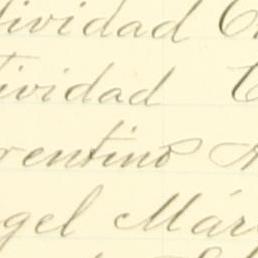 tividad
tividad
rentino
gel Már